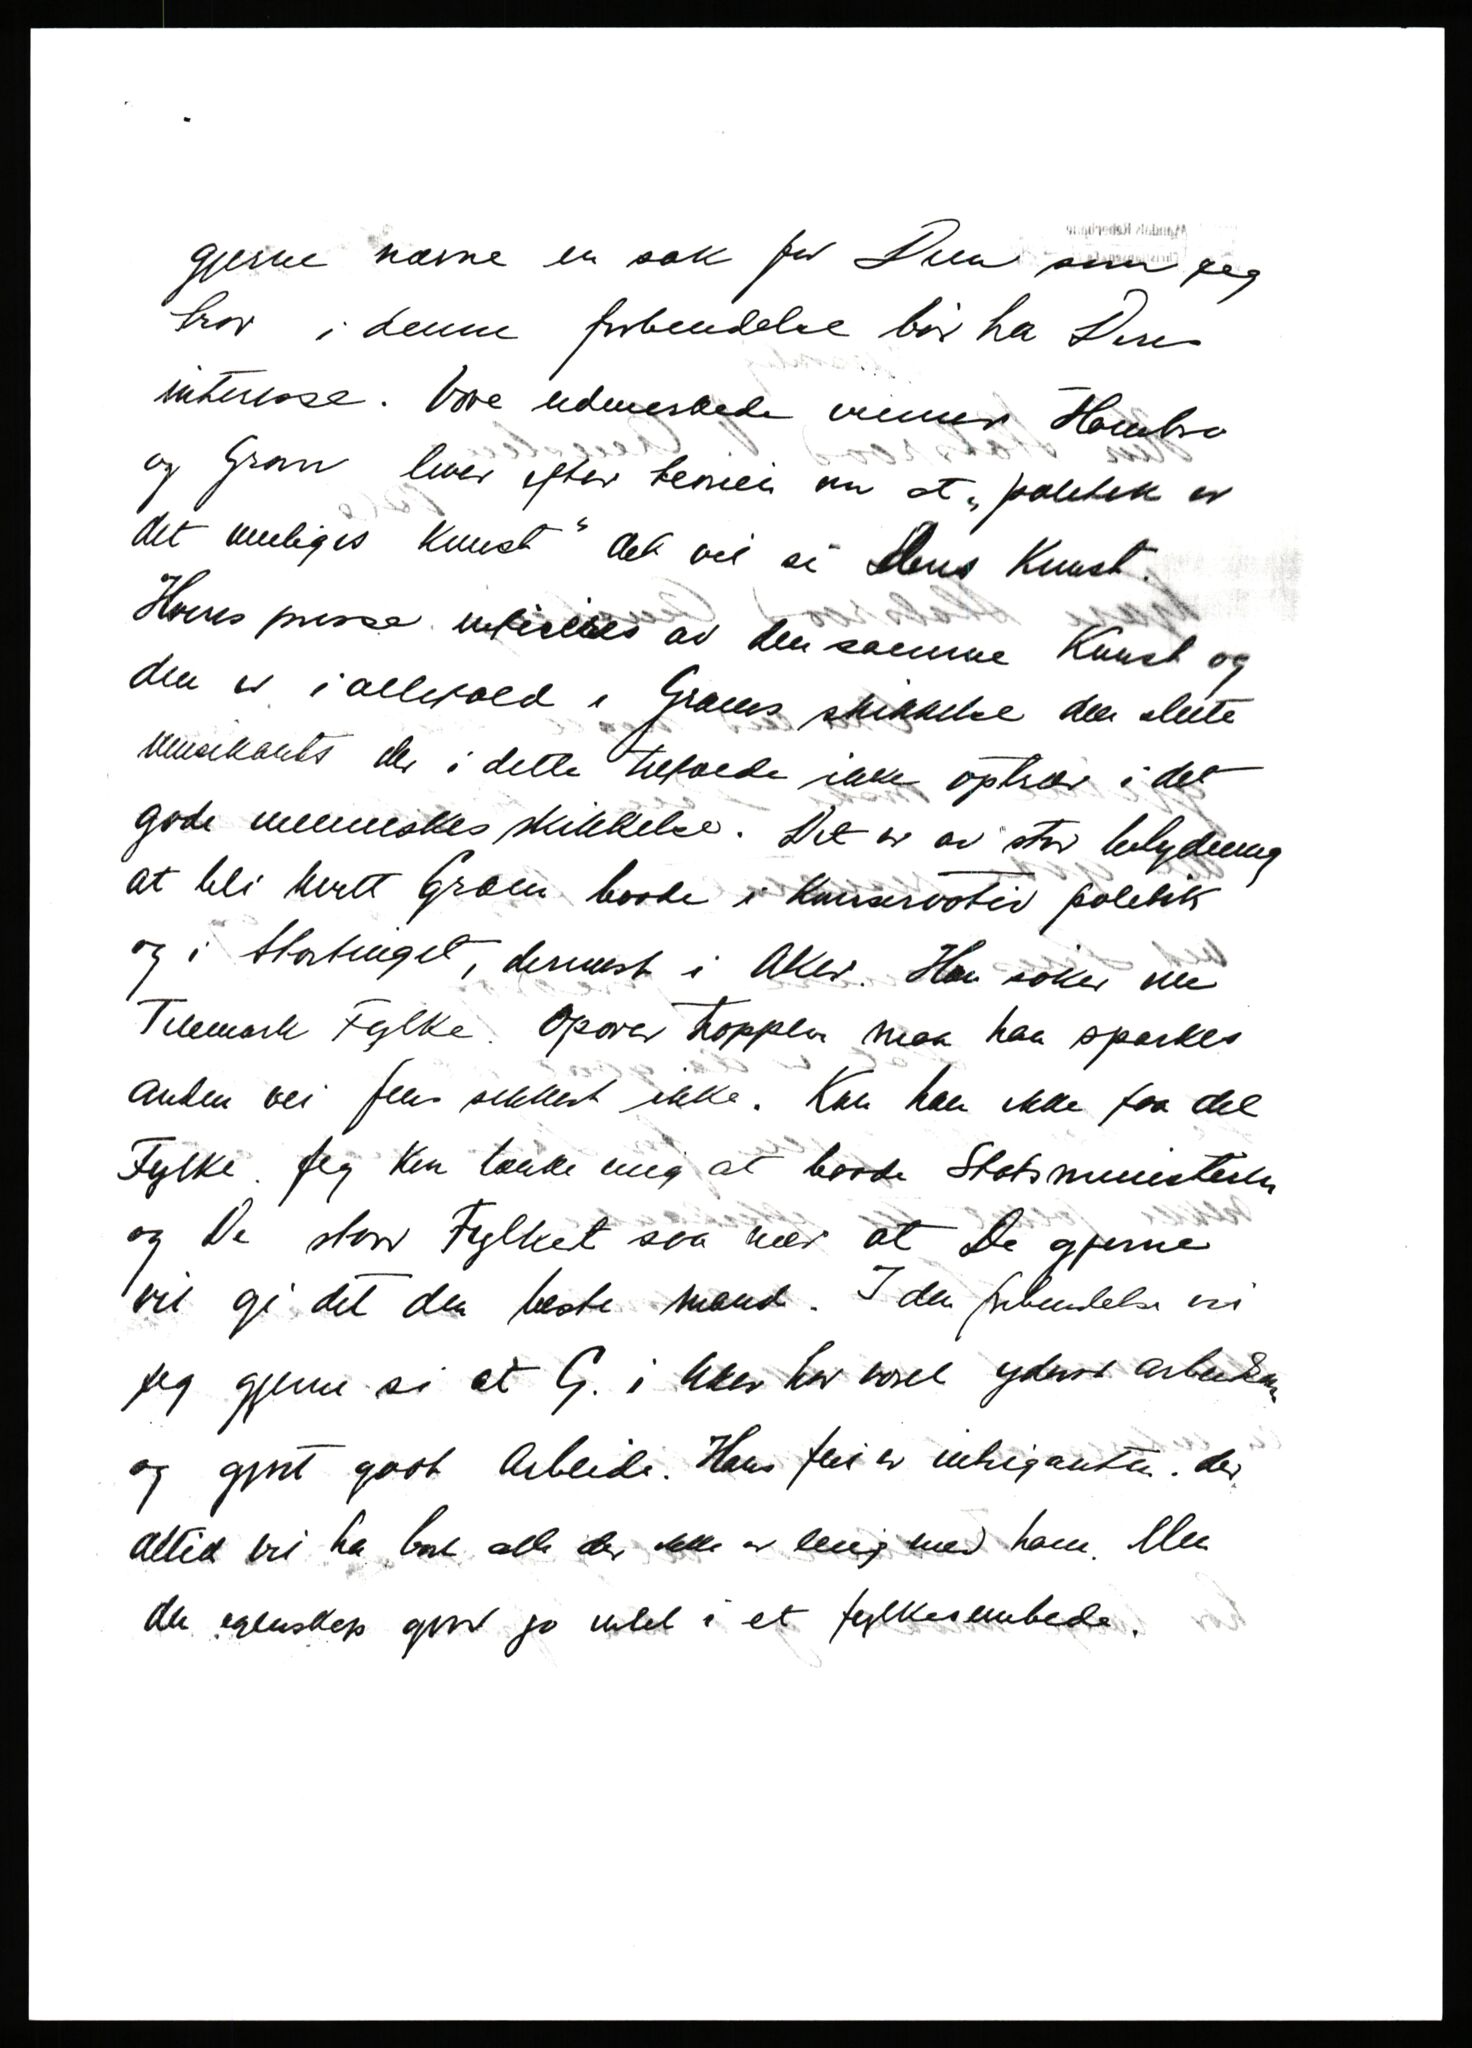 gjerne nævne en sak for Dem som jeg
tror i denne forbindelse bör ha Deres
interesse. Vore udmerkede venner Hambro
og Gram lever efter teorien om at „politik er
det muliges kunst" det vil si deres Kunst.
Høires presse infiseres av den samme Kunst og
den er i allefald i Grams skikkelse den slette
musikants der i dette tilfælde ikke optrær i det
gode menneskes skikkelse. Det er av stor betydning
at bli kvitt Gram baade i konservativ politik
og i Stortinget, dernæst i Aker. Han søker nu
Telemark Fylke. Opover trappen maa han sparkes
anden vei fins sikkert ikke. Kan han ikke faa det
Fylke. Jeg kan tænke mig at baade Statsministeren
og De staar Fylket saa nær at De gjerne
vil gi det den beste mand. I den forbindelse vil
jeg gjerne si at G. i Aker har været yderst arbeidsom
og gjort godt Arbeide. Hans feil er intriganten. der
altid vil ha bort alle der ikke er enig med ham. Men
den egenskap gjør jo intet i et fylkesembede.